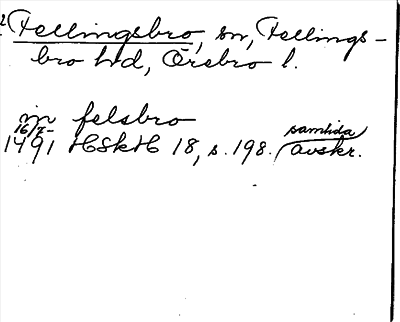 Fellingsbro, sn, Fellings-
bro hd, Örebro l.
jn felsbro
16/7-
1491 HSkH 18, s. 198. samtida
avskr.